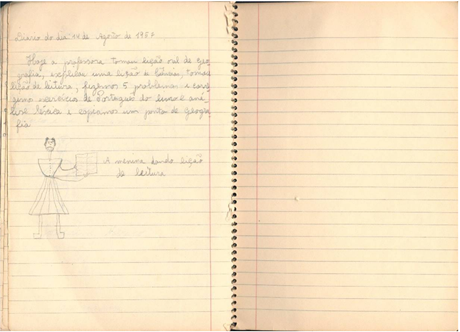 Diário do dia 14 de Agosto de 195
Hoje a professora tomou lição oral de geo-
grafia, explicou uma lição de ciências, tomou
lição de leitura, fizemos 5 problemas e
exercício de Portugues do livro e aná-
lise léxica e copiamos um ponto de geogra-
fia
A menina dando lição
de leitura